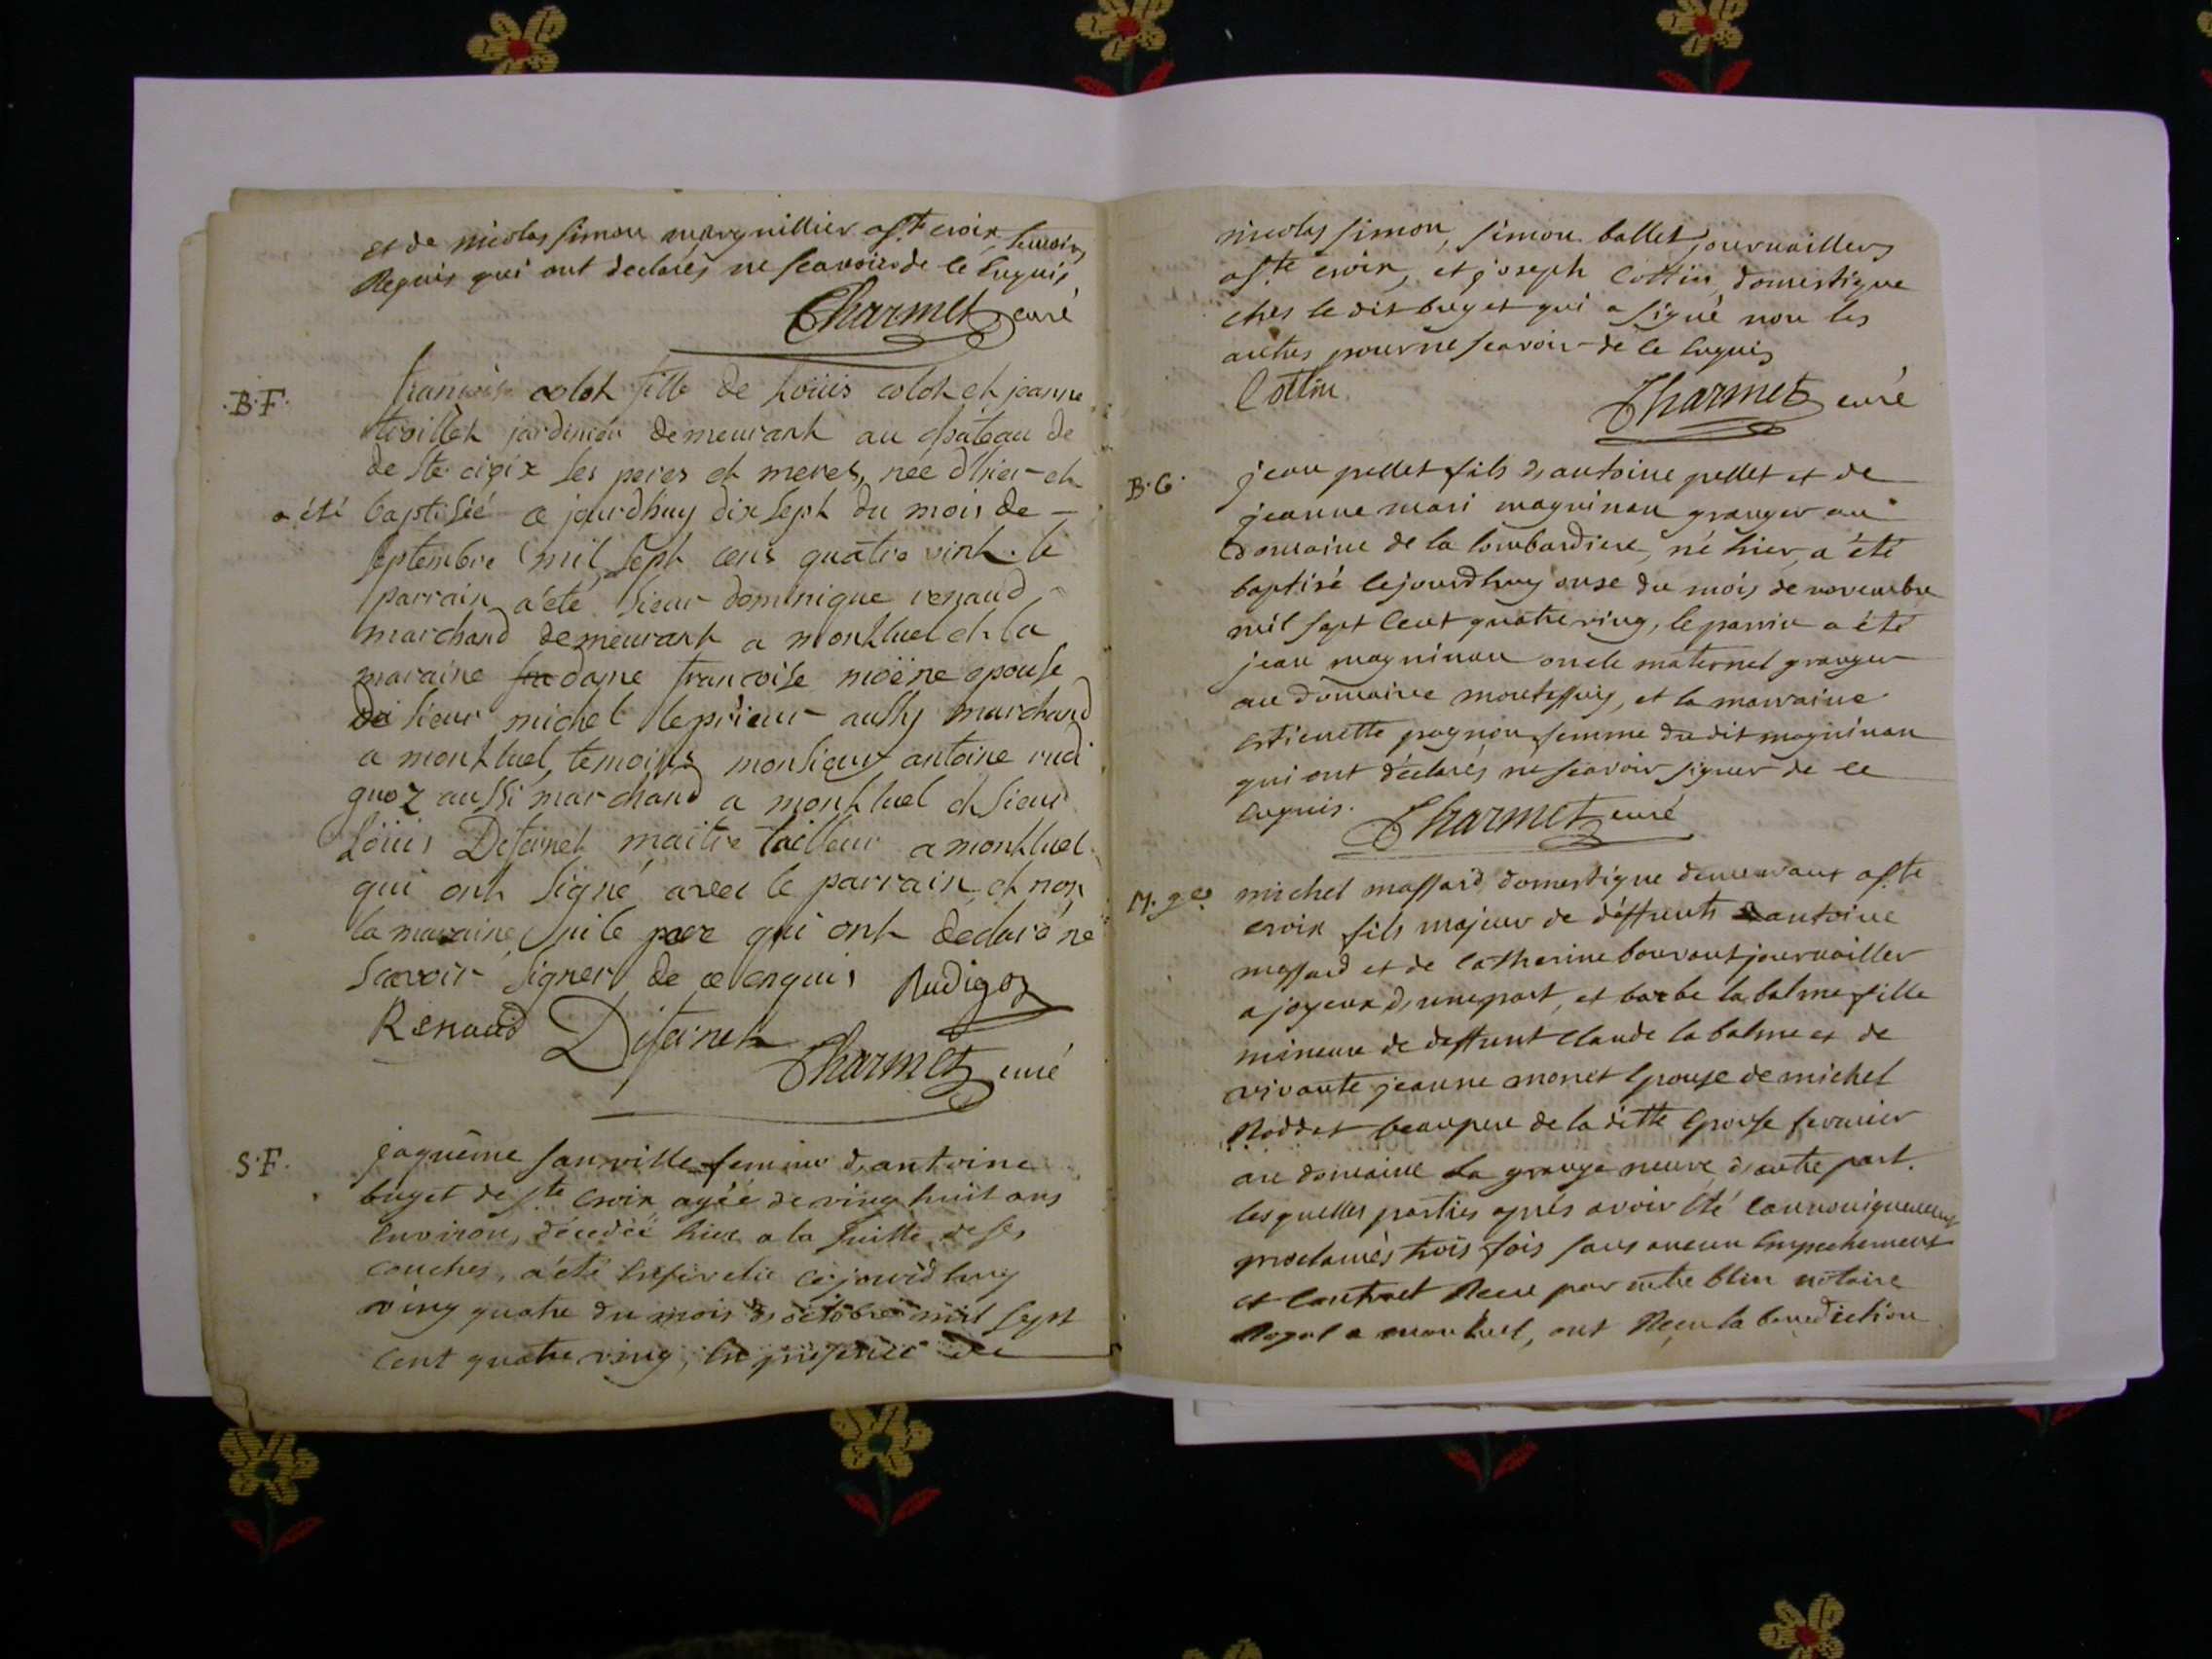 et de nicolas simon marguillier a ste croix temoins
Requis qui ont declarés ne scavoir de ce Enquis
Charmet curé
.B.F. francoise colot fille de Loüis colot et jeanne
trvillet jardinier demeurant au chateau de
de ste croix ses peres et meres, née d'hier et
a été baptisée ce jourdhuy dix sept du mois de
septembre mil sept cens quatre vint. le
parrain a été sieur dominique renaud
marchand demeurant a montluel et la
maraine dame francoise moëne epouse
du sieur michel leprieur aussy marchand
a montluel, temoins monsieur antoine rudi
goz aussi marchand a montluel et sieur
Loüis Difernet maitre tailleur a montluel
qui ont signé avec le parrain et non
la maraine, ni le pere qui ont declaré ne
scavoir signer de ce enquis Rudigoz
Renaud Difernet
Charmet curé
S.F. jaquême sanville femme d'antoine
buget de ste Croix agéé de ving huit ans
Environ, décedéé hier a la suitte de ses
couches, a été Ensevelie ce jourd'huy
ving quatre du mois d'octobre mil sept
Cent quatre ving, En presence de
nicolas simon, simon ballet journailliers
a ste croix, et joseph Cottin, domestique
ches le dit buget qui a signé non les
autres pour ne scavoir de ce Enquis
Cottin. Charmet curé
B.G. jean pellet fils d'antoine pellet et de
jeanne mari magninan granger au
Domaine de la lombardiere, né hier, a été
baptisé cejourdhuy onze du mois de novembre
mil sept Cent quatre ving, le parrin a été
jean magninan oncle maternel granger
au domaine montessuy, et la marraine
estienette pagnon femme du dit magninan
qui ont déclarés ne scavoir signer de ce
Enquis. Charmet curé
M.ges michel massard domestique demeurant a ste
croix fils majeur de déffunts antoine
massard et de Catherine bouvant journailler
a joyeux d'une part, et barbe la balme fille
mineure de deffunt Claude la balme et de
vivante jeanne monet Epouse de michel
Noddet beaupere de la ditte Epouse fermier
au domaine La grange neuve d'autre part.
lesquelles parties aprés avoir Eté Cannoniquement
proclamés trois fois sans aucun Empechement
et Contract Receu par mtre blin notaire
Royal a montluel, ont Reçu la benediction